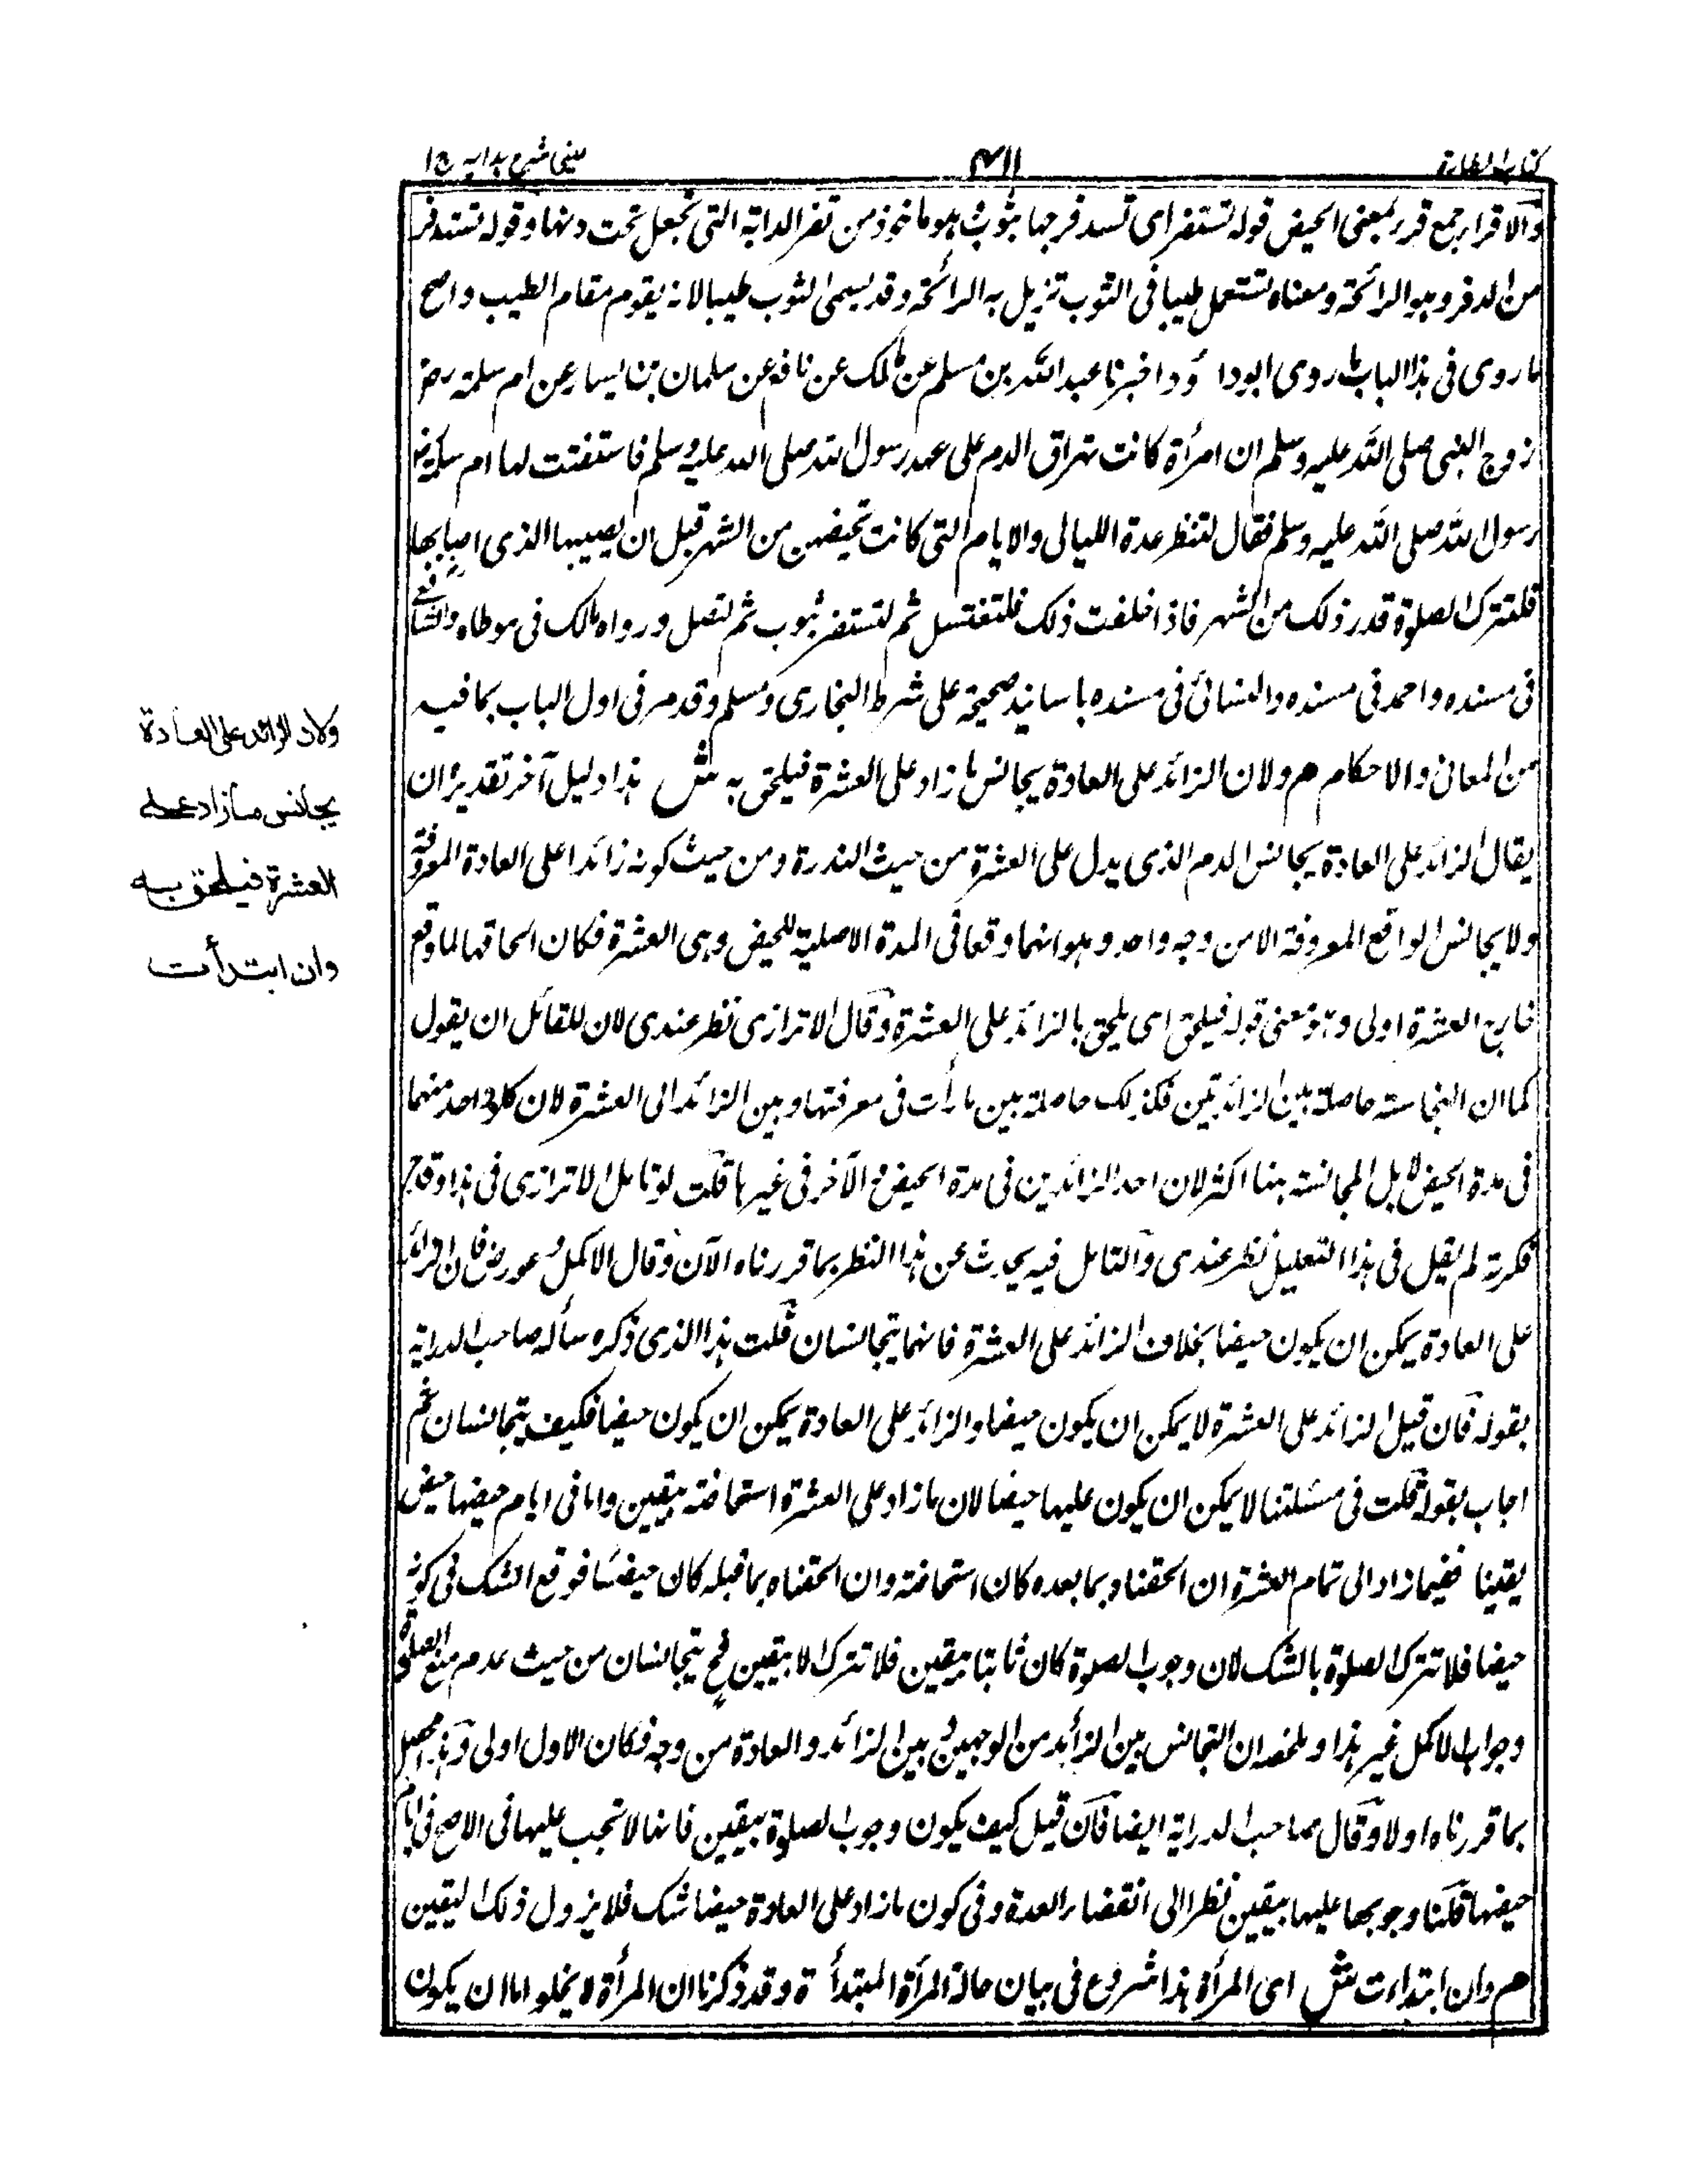 كتاب الطهارة
٤١١
عينى شرح هدايه ج ١
والاقرار جمع قرء بمعنى الحيض قوله تستثفر اى تسد فرجها بثوب هو ماخوذ من ثفر الدابة التى تجعل تحت ذنبها وقوله تستذفر
من الدفر وهو الرائحة ومعناه تستعمل طيبا فى الثوب تزيل به الرائحة وقد يسمى الثوب طيبا لانه يقوم مقام الطيب واصح
ما روى فى هذا الباب ما روى ابوداؤد اخبرنا عبد الله بن مسلم عن مالك عن نافع عن سلمان بن يسار عن ام سلمة رض
زوج النبى صلى الله عليه وسلم ان امرأة كانت تهراق الدم على عهد رسول الله صلى الله عليه وسلم فاستفتت لها ام سلمة رض
رسول الله صلى الله عليه وسلم فقال لتنظر عدة الليالى والايام التى كانت تحيضهن من الشهر قبل ان يصيبها الذى اصابها
فلتترك الصلوة قدر ذلك من الشهر فاذا خلفت ذلك فلتغتسل ثم لتستثفر بثوب ثم لتصل ورواه مالك فى موطاه والشافعى
فى مسنده واحمد فى مسنده والنسائى فى مسنده باسانيد صحيحة على شرط البخارى ومسلم وقد مر فى اول الباب بما فيه
من المعانى والاحكام هم ولان الزائد على العادة يجانس ما زاد على العشرة فيلحق به ش هذا دليل آخر تقديره ان
يقال الزائد على العادة يجانس الدم الذى يدل على العشرة من حيث الندرة ومن حيث كونه زائدا على العادة المعروفة
ولا يجانس الواقع المعروفة الا من وجه واحد وهو انهما وقعا فى المدة الاصلية للحيض وهى العشرة فكان الحاقها لما وقع
خارج العشرة اولى وهو معنى قوله فيلحق اى يلحق بالزائد على العشرة وقال الاترازى نظر عندى لان للقائل ان يقول
كما ان النجاسته حاصلة بين الزائدتين فكذلك حاصلة بين ما رأت فى معرفتها وبين الزائد الى العشرة لان كلا واحد منهما
فى مدة الحيض لا بل المجانسته هنا اكثر لان احد الزائدين فى مدة الحيض والآخر فى غيرها قلت لو تامل الاترازى فى هذا وقدح
فكرته لم يقل فى هذا التعليل نظر عندى والتامل فيه يحدث عن هذا النظر بما قررناه الآن وقال الاكمل وعورض فان الزائد
على العادة يمكن ان يكون حيضا بخلاف الزائد على العشرة فانهما يتجالسان قلت هذا الذى ذكره سأله صاحب الدراية
بقوله فان قيل الزائد على العشرة لا يمكن ان يكون حيضا والزائد على العادة يمكن ان يكون حيضا فكيف يتجانسان ثم
اجاب بقوله قلت فى مسئلتنا لا يمكن ان يكون عليها حيضا لان ما زاد على العشرة استحاضته بيقين واما فى ايام حيضها حيض
يقينا ففيما زاد الى تمام العشرة ان الحقناه بما بعده كان استحاضته وان الحقناه بما قبله كان حيضا فوقع الشك فى كونه
حيضا فلا تترك الصلوة بالشك لان وجوب الصلوة كان ثابتا بيقين فلا تترك الا بيقين فح يتجانسان من حيث عدم منع الصلوة
وجواب الاكمل غير هذا وملخصه ان التجانس بين الزائد من الوجهين وبين الزائد والعادة من وجه فكان الاول اولى وهذا محصل
بما قررناه اولا وقال صاحب الدراية ايضا فان قيل كيف يكون وجوب الصلوة بيقين فانها لا تجب عليها فى الاصح فى ايام
حيضها قلنا وجوبها عليها بيقين نظرا الى انقضاء العدة وفى كون ما زاد على العادة حيضا شك فلا يزول ذلك اليقين
هم وان ابتداءت ش اى المرأة هذا شروع فى بيان حالة المرأة المبتدأة وقد ذكرنا ان المرأة لا يخلو اما ان يكون
ولان الزائد على العادة
يجانس ما زاد على
العشرة فيلحق به
وان ابتدأت